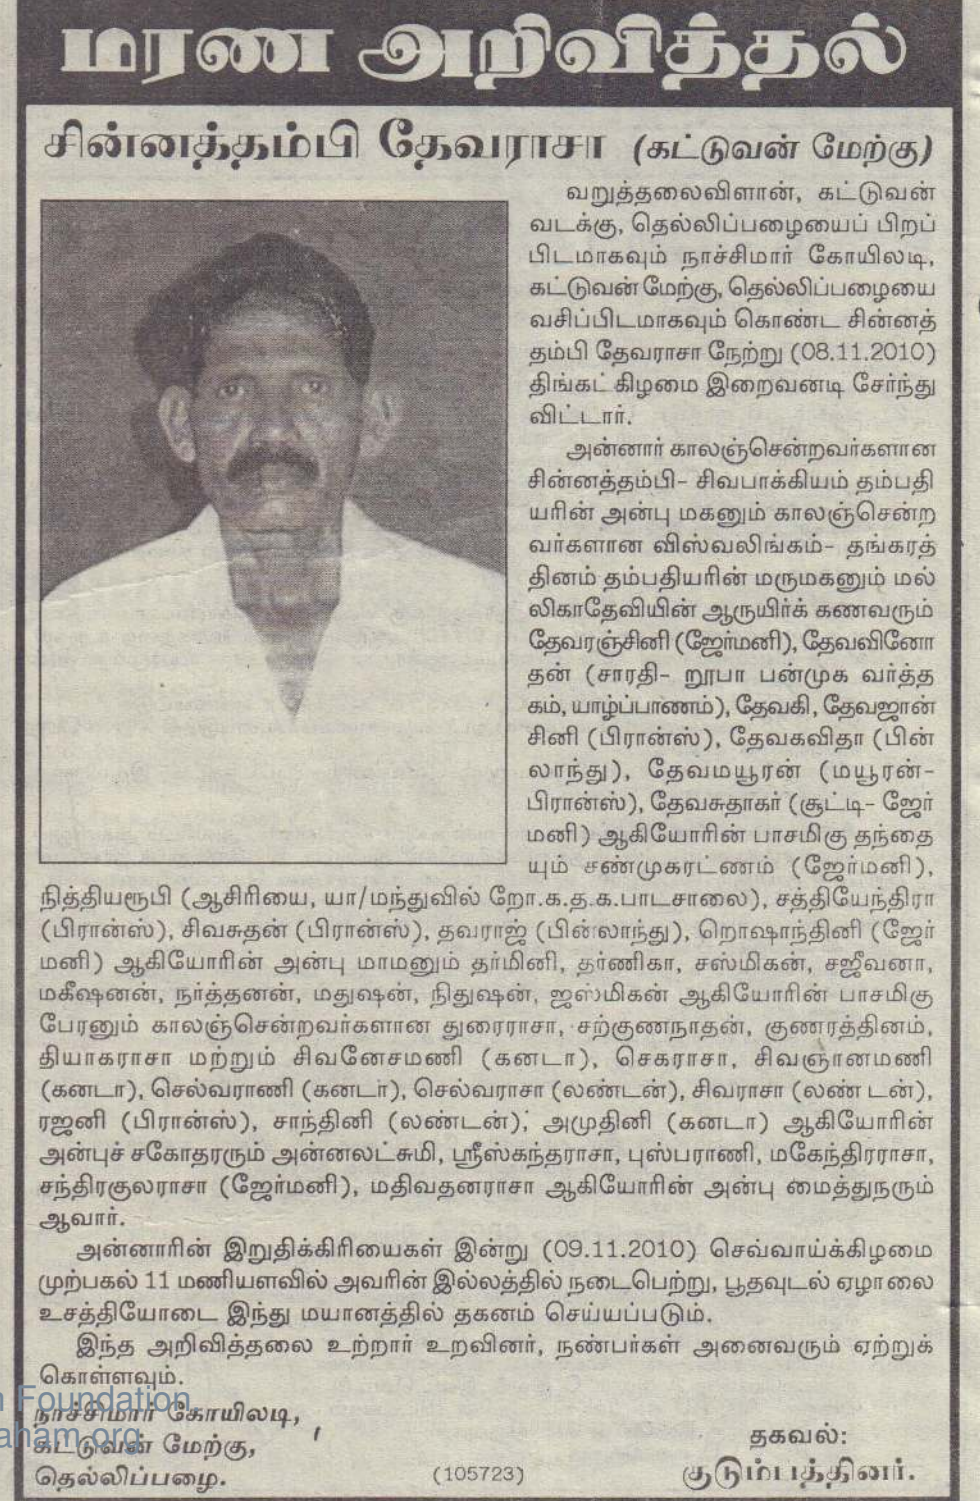 மரண அறிவித்தல்
சின்னத்தம்பி தேவராசா (கட்டுவன் மேற்கு)
வறுத்தலைவிளான், கட்டுவன்
வடக்கு, தெல்லிப்பழையைப் பிறப்
பிடமாகவும் நாச்சிமார் கோயிலடி,
கட்டுவன் மேற்கு, தெல்லிப்பழையை
வசிப்பிடமாகவும் கொண்ட சின்னத்
தம்பி தேவராசா நேற்று (08.11.2010)
திங்கட் கிழமை இறைவனடி சேர்ந்து
விட்டார்.
அன்னார் காலஞ்சென்றவர்களான
சின்னத்தம்பி- சிவபாக்கியம் தம்பதி
யரின் அன்பு மகனும் காலஞ்சென்ற
வர்களான விஸ்வலிங்கம்- தங்கரத்
தினம் தம்பதியரின் மருமகனும் மல்
லிகாதேவியின் ஆருயிர்க் கணவரும்
தேவரஞ்சினி (ஜேர்மனி), தேவவினோ
தன் (சாரதி- றூபா பன்முக வர்த்த
கம், யாழ்ப்பாணம்), தேவகி, தேவஜான்
சினி (பிரான்ஸ்), தேவகவிதா (பின்
லாந்து), தேவமயூரன் (மயூரன்-
பிரான்ஸ்), தேவசுதாகர் (சூட்டி- ஜேர்
மனி) ஆகியோரின் பாசமிகு தந்தை
யும் சண்முகரட்ணம் (ஜேர்மனி),
நித்தியரூபி (ஆசிரியை, யா/மந்துவில் றோ.க.த.க.பாடசாலை), சத்தியேந்திரா
(பிரான்ஸ்), சிவசுதன் (பிரான்ஸ்), தவராஜ் (பின்லாந்து), றொஷாந்தினி (ஜேர்
மனி) ஆகியோரின் அன்பு மாமனும் தர்மினி, தர்ணிகா, சஸ்மிகன், சஜீவனா,
மகீஷனன், நர்த்தனன், மதுஷன், நிதுஷன், ஜஸ்மிகன் ஆகியோரின் பாசமிகு
பேரனும் காலஞ்சென்றவர்களான துரைராசா, சற்குணநாதன், குணரத்தினம்,
தியாகராசா மற்றும் சிவனேசமணி (கனடா), செகராசா, சிவஞானமணி
(கனடா), செல்வராணி (கனடா), செல்வராசா (லண்டன்), சிவராசா (லண் டன்),
ரஜனி (பிரான்ஸ்), சாந்தினி (லண்டன்), அமுதினி (கனடா) ஆகியோரின்
அன்புச் சகோதரரும் அன்னலட்சுமி, ஸ்ரீஸ்கந்தராசா, புஸ்பராணி, மகேந்திரராசா,
சந்திரகுலராசா (ஜேர்மனி), மதிவதனராசா ஆகியோரின் அன்பு மைத்துநரும்
ஆவார்.
அன்னாரின் இறுதிக்கிரியைகள் இன்று (09.11.2010) செவ்வாய்க்கிழமை
முற்பகல் 11 மணியளவில் அவரின் இல்லத்தில் நடைபெற்று, பூதவுடல் ஏழாலை
உசத்தியோடை இந்து மயானத்தில் தகனம் செய்யப்படும்.
இந்த அறிவித்தலை உற்றார் உறவினர், நண்பர்கள் அனைவரும் ஏற்றுக்
கொள்ளவும்.
நாச்சிமார் கோயிலடி,
கட்டுவன் மேற்கு,
தெல்லிப்பழை.
(105723)
தகவல்:
குடும்பத்தினர்.
n Foundation.
aham.org